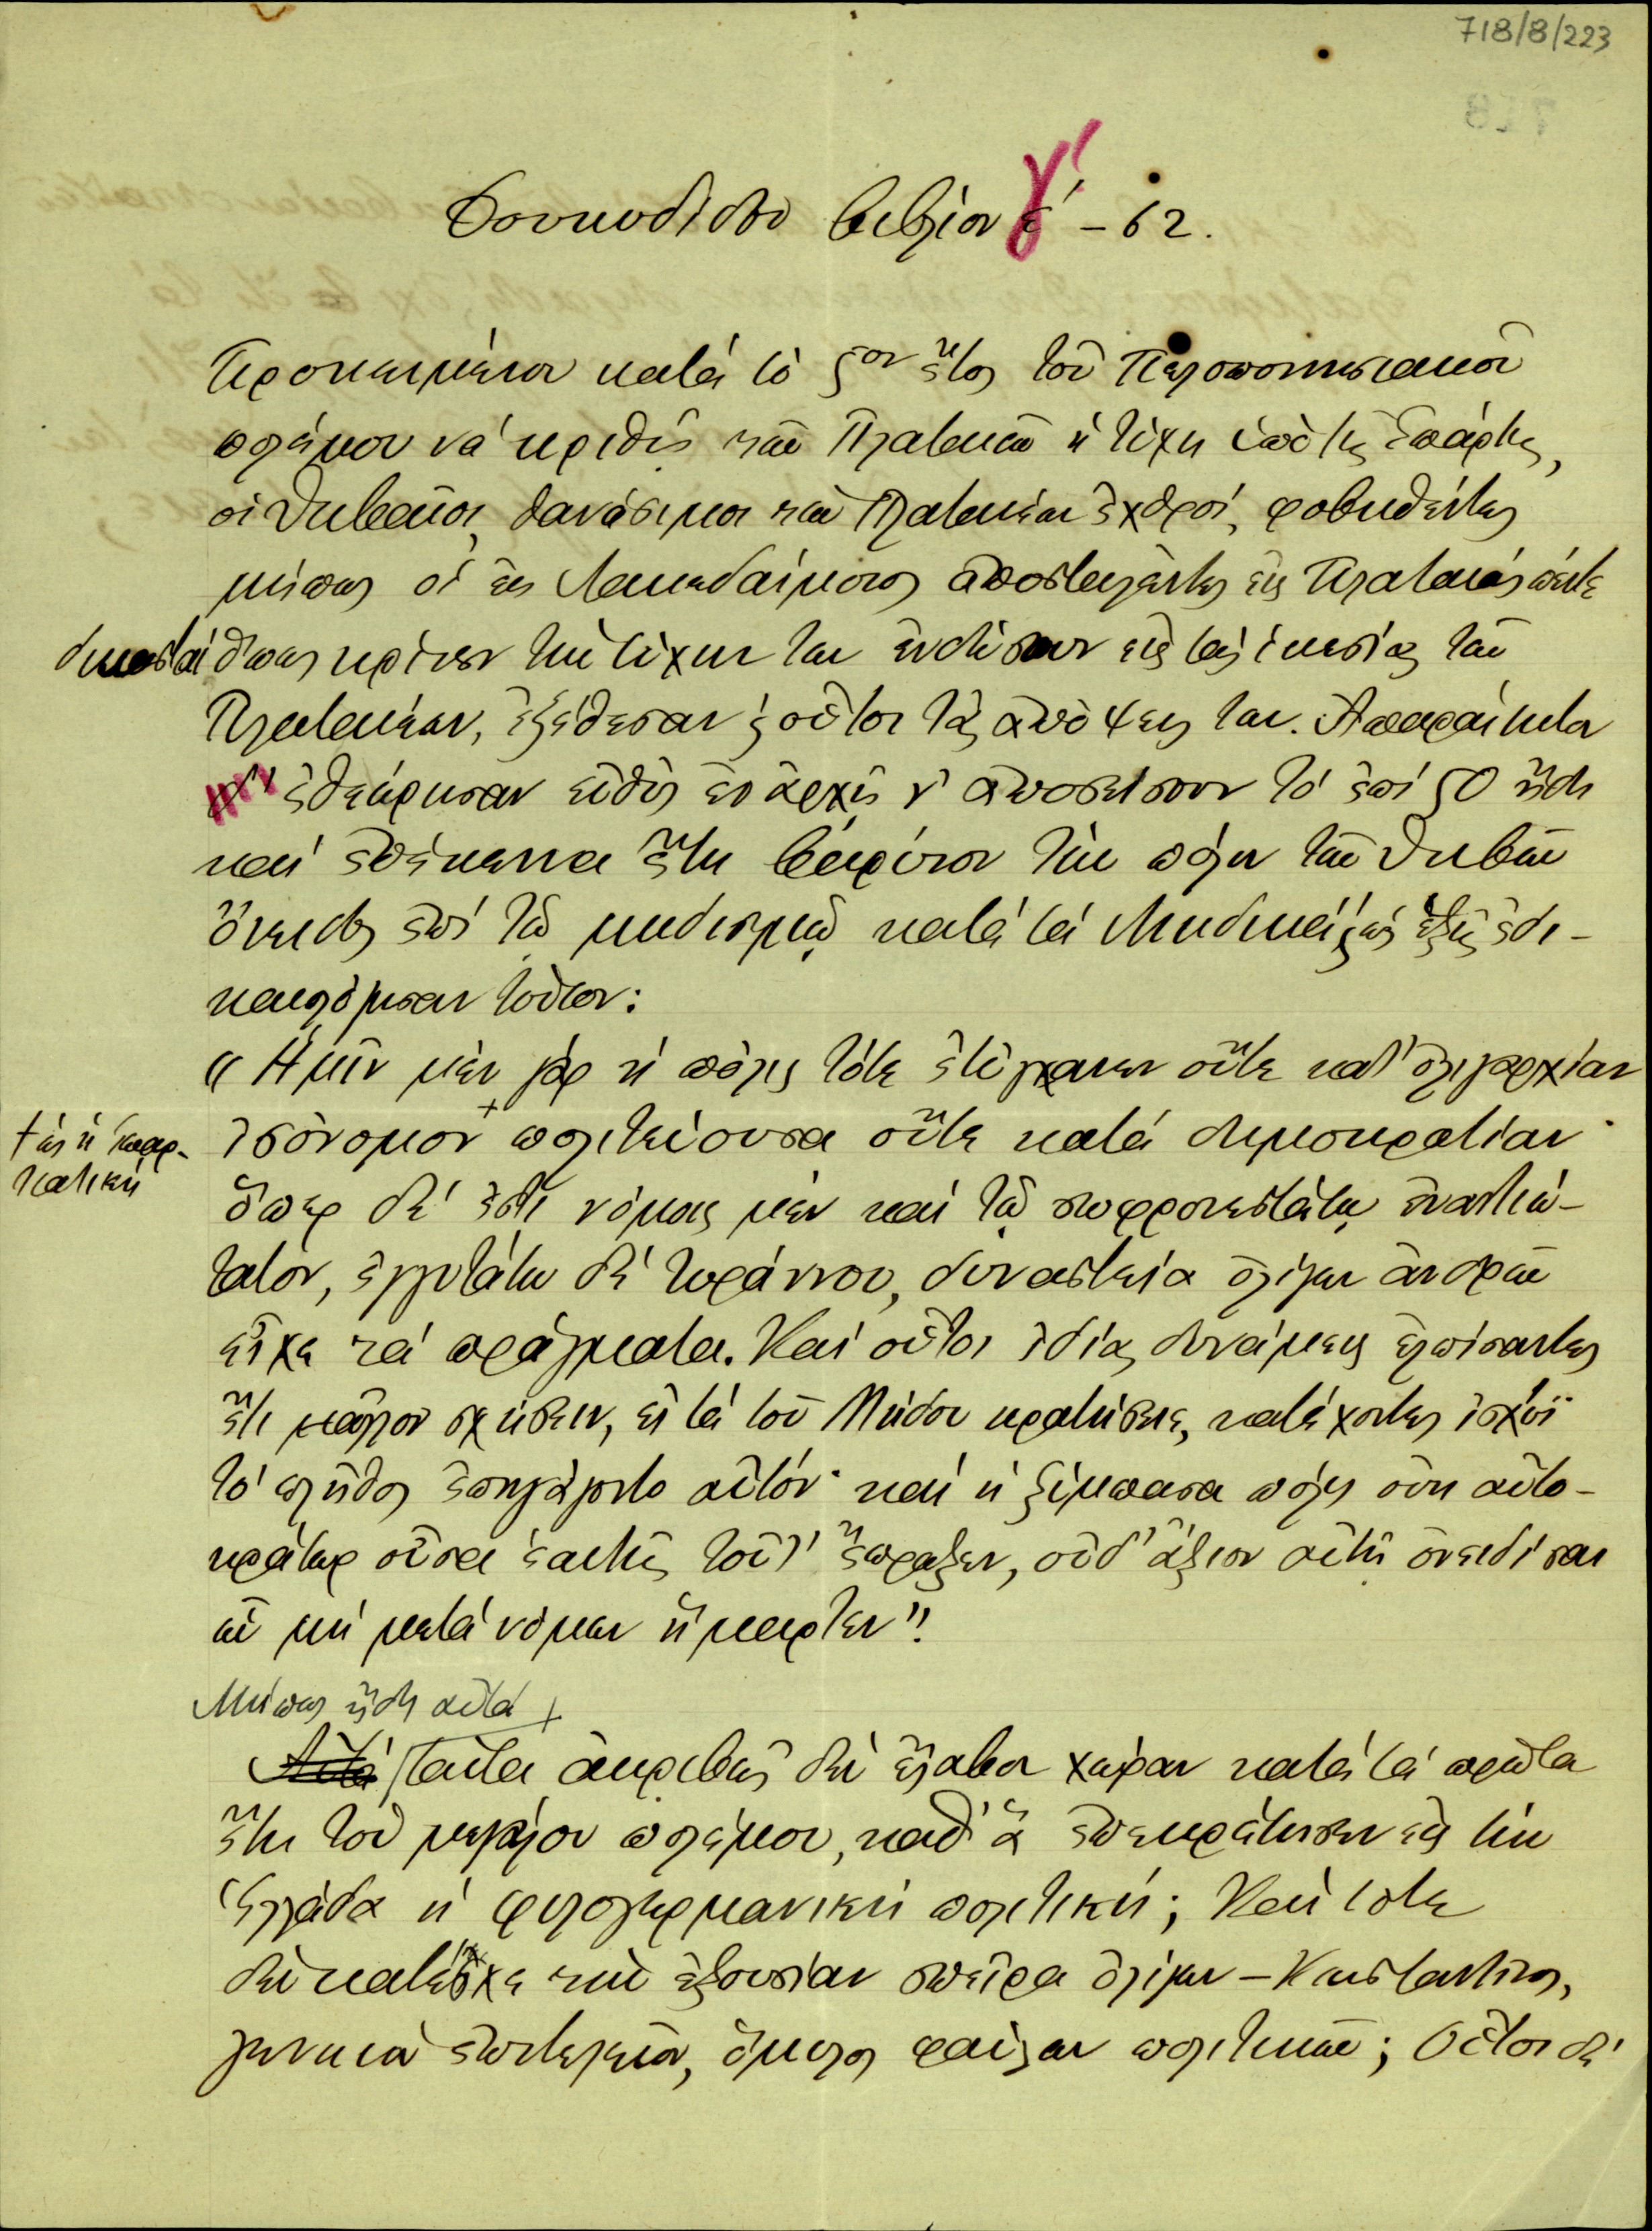 718/8/223
Θουκυδίδου βιβλίον γ' - 62.
Προκειμένου κατά τὸ 5ον ἔτος τοῦ Πελοποννησιακοῦ
πολέμου νά κριθῇ τῶν Πλαταιῶν ἡ τύχη ὑπὸ τῆς Σπάρτης,
οἱ Θηβαῖοι, θανάσιμοι τῶν Πλαταιέων ἐχθροί, φοβηθέντες
μήπως οἱ ἐκ Λακεδαίμονος ἀποσταλέντες εἰς Πλαταιάς πέντε
δικασταί ὅπως κρίνουν τὴν τύχην των ἐνδώσουν εἰς τάς ἱκεσίας τῶν
Πλαταιέων, ἐξέθεσαν κ οὗτοι τὰς ἀπόψεις των. Ἀπαραίτητον
ἐθεώρησαν εὐθύς ἐν ἀρχῇ ν' ἀποσείσουν τό ἐπί 50 ἤδη
καί ἐπέκεινα ἔτη βαρῦνον τήν πόλιν τῶν Θηβῶν
ὄνειδος ἐπί τῷ μηδισμῷ κατά τά Μηδικά, κ ὡς ἑξῆς ἐδι-
καιολόγησαν τοῦτον:
« Ἡμῖν μέν γάρ ἡ πόλις τότε ἐτύγχανεν οὔτε κατ' ὀλιγαρχίαν
ἰσόνομον + πολιτεύουσα οὔτε κατά δημοκρατίαν·
+ ὡς ἡ Σπαρ-
τιατική
ὅπερ δέ ἐστι νόμοις μέν καί τῷ σωφρονεστάτῳ ἐναντιώ-
τατον, ἐγγυτάτω δέ τυράννου, δυναστεία ὀλίγων ἀνδρῶν
εἶχε τά πράγματα. Καί οὗτοι ἰδίας δυνάμεις ἐλπίσαντες
ἔτι μᾶλλον σχήσειν, εἰ τά τοῦ Μήδου κρατήσειε, κατέχοντες ἰσχύϊ
τό πλῆθος ἐπηγάγοντο αὐτόν· καί ἡ ξύμπασα πόλις οὐκ αὐτο-
κράτωρ οὖσα ἑαυτῆς τοῦτ' ἔπραξεν, οὐδ' ἄξιον αὐτῇ ὀνειδίσαι
ὧν μή μετά νόμων ἥμαρτεν".
Μήπως ἤδη αὐτά +
Αὐτά ταῦτα ἀκριβῶς δέν ἔλαβον χώραν κατά τά πρῶτα
ἔτη τοῦ μεγάλου πολέμου, καθ' ἅ ἐπεκράτησεν εἰς τήν
Ἑλλάδα ἡ φιλογερμανική πολιτική; Καί τότε
δέν κατεῖχε τήν ἐξουσίαν σπεῖρα ὀλίγων - Κωνσταντῖνος,
γενικόν ἐπιτελεῖον, ὅμιλος φαύλων πολιτικῶν; Οὗτοι δέ